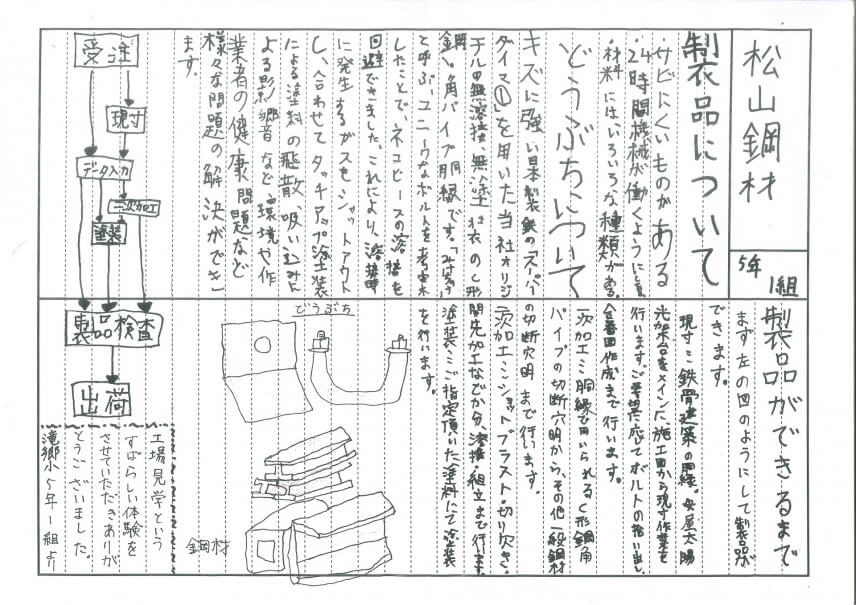 松山鋼材
5年1組
製品について
・サビにくいものがある
・24時間機械が働くように
・材料には、いろいろな種類がある。
どうぶちについて
キズに強い日本製鉄のスーパー
ダイマ①を用いた当社オリジ
ナルの無溶接、無塗装のC形
鋼、角パイプ胴縁です。
と呼ぶ、ユニークなボルトを考案
したことで、ネコピースの溶接を
回避できました。これにより、溶接時
に発生するガスをシャットアウト
し、合わせてタッチアップ塗装
による塗料の飛散、吸い込みに
よる影響など、環境や作
業者の健康問題など
様々な問題の解決ができ
ます。
受注
現寸
データ入力
二次加工
塗装
製品検査
出荷
製品ができるまで
まず左の図のようにして製品が
できます。
現寸:鉄骨建築の胴縁、母屋、太陽
光架台をメインに、施工図から現寸作業を
行います。ご要望に応じてボルトの拾い出し、
図作成まで行います。
一次加工:胴縁で用いられるC形鋼、角
パイプの切断穴明から、その他一般鋼材
の切断穴明まで行います。
二次加工:ショットブラスト・切り欠き・
開先加工などから、溶接・組立まで行います。
塗装:ご指定頂いた塗料にて塗装
を行います。
どうぶち
鋼材
工場見学という
すばらしい体験を
させていただきありが
とうございました。
滝郷小5年1組より